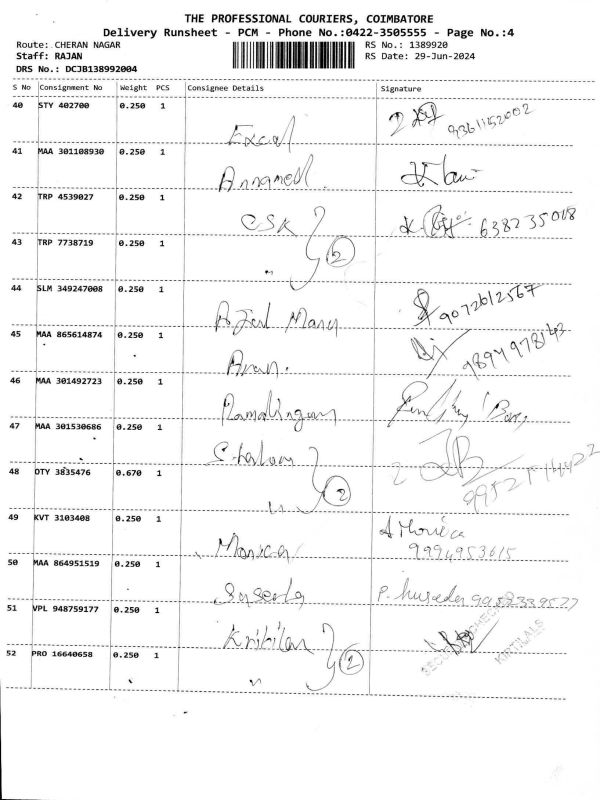 THE PROFESSIONAL COURIERS, COIMBATORE
Delivery Runsheet - PCM - Phone No.:0422-3505555 - Page No.:4
Route: CHERAN NAGAR RS No.: 1389920
Staff: RAJAN RS Date: 29-Jun-2024
DRS No.: DCJB138992004
S No Consignment No Weight PCS Consignee Details Signature
40 STY 402700 0.250 1
Excel 9361152002
41 MAA 301108930 0.250 1
42 TRP 4539027 0.250 1
CSK 638235018
43 TRP 7738719 0.250 1
2
44 SLM 349247008 0.250 1
9072612567
45 MAA 865614874 0.250 1
Arun. 9894978143
46 MAA 301492723 0.250 1
Ramalingam
47 MAA 301530686 0.250 1
2
48 OTY 3835476 0.670 1
2 9952514422
49 KVT 3103408 0.250 1
Monica 9994953615
50 MAA 864951519 0.250 1
51 VPL 948759177 0.250 1
52 PRO 16640658 0.250 1
2 KIRTILALS